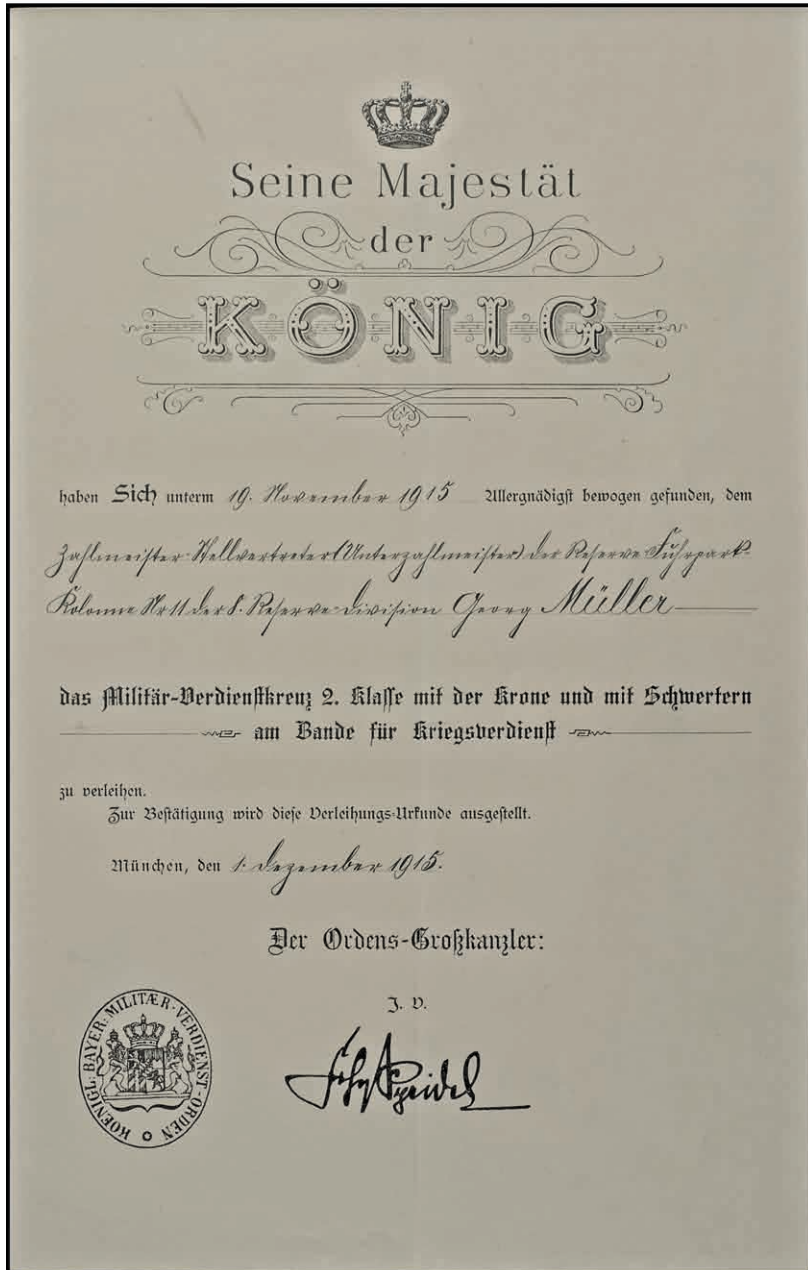 Seine Majestät
der
KÖNIG
haben Sich unterm 19. November 1915 Allergnädigst bewogen gefunden, dem
Zahlmeister-Stellvertreter (Unterzahlmeister) der Reserve Fuhrpark-
Kolonne Nr 11 der 8. Reserve-Division Georg Müller
das Militär-Verdienstkreuz 2. Klasse mit der Krone und mit Schwertern
am Bande für Kriegsverdienst
zu verleihen.
Zur Bestätigung wird diese Verleihungs-Urkunde ausgestellt.
München, den 1. Dezember 1915.
Der Ordens-Großkanzler:
J. V.
KOENIGL: BAYER: MILITÆR-VERDIENST-ORDEN
Speidel